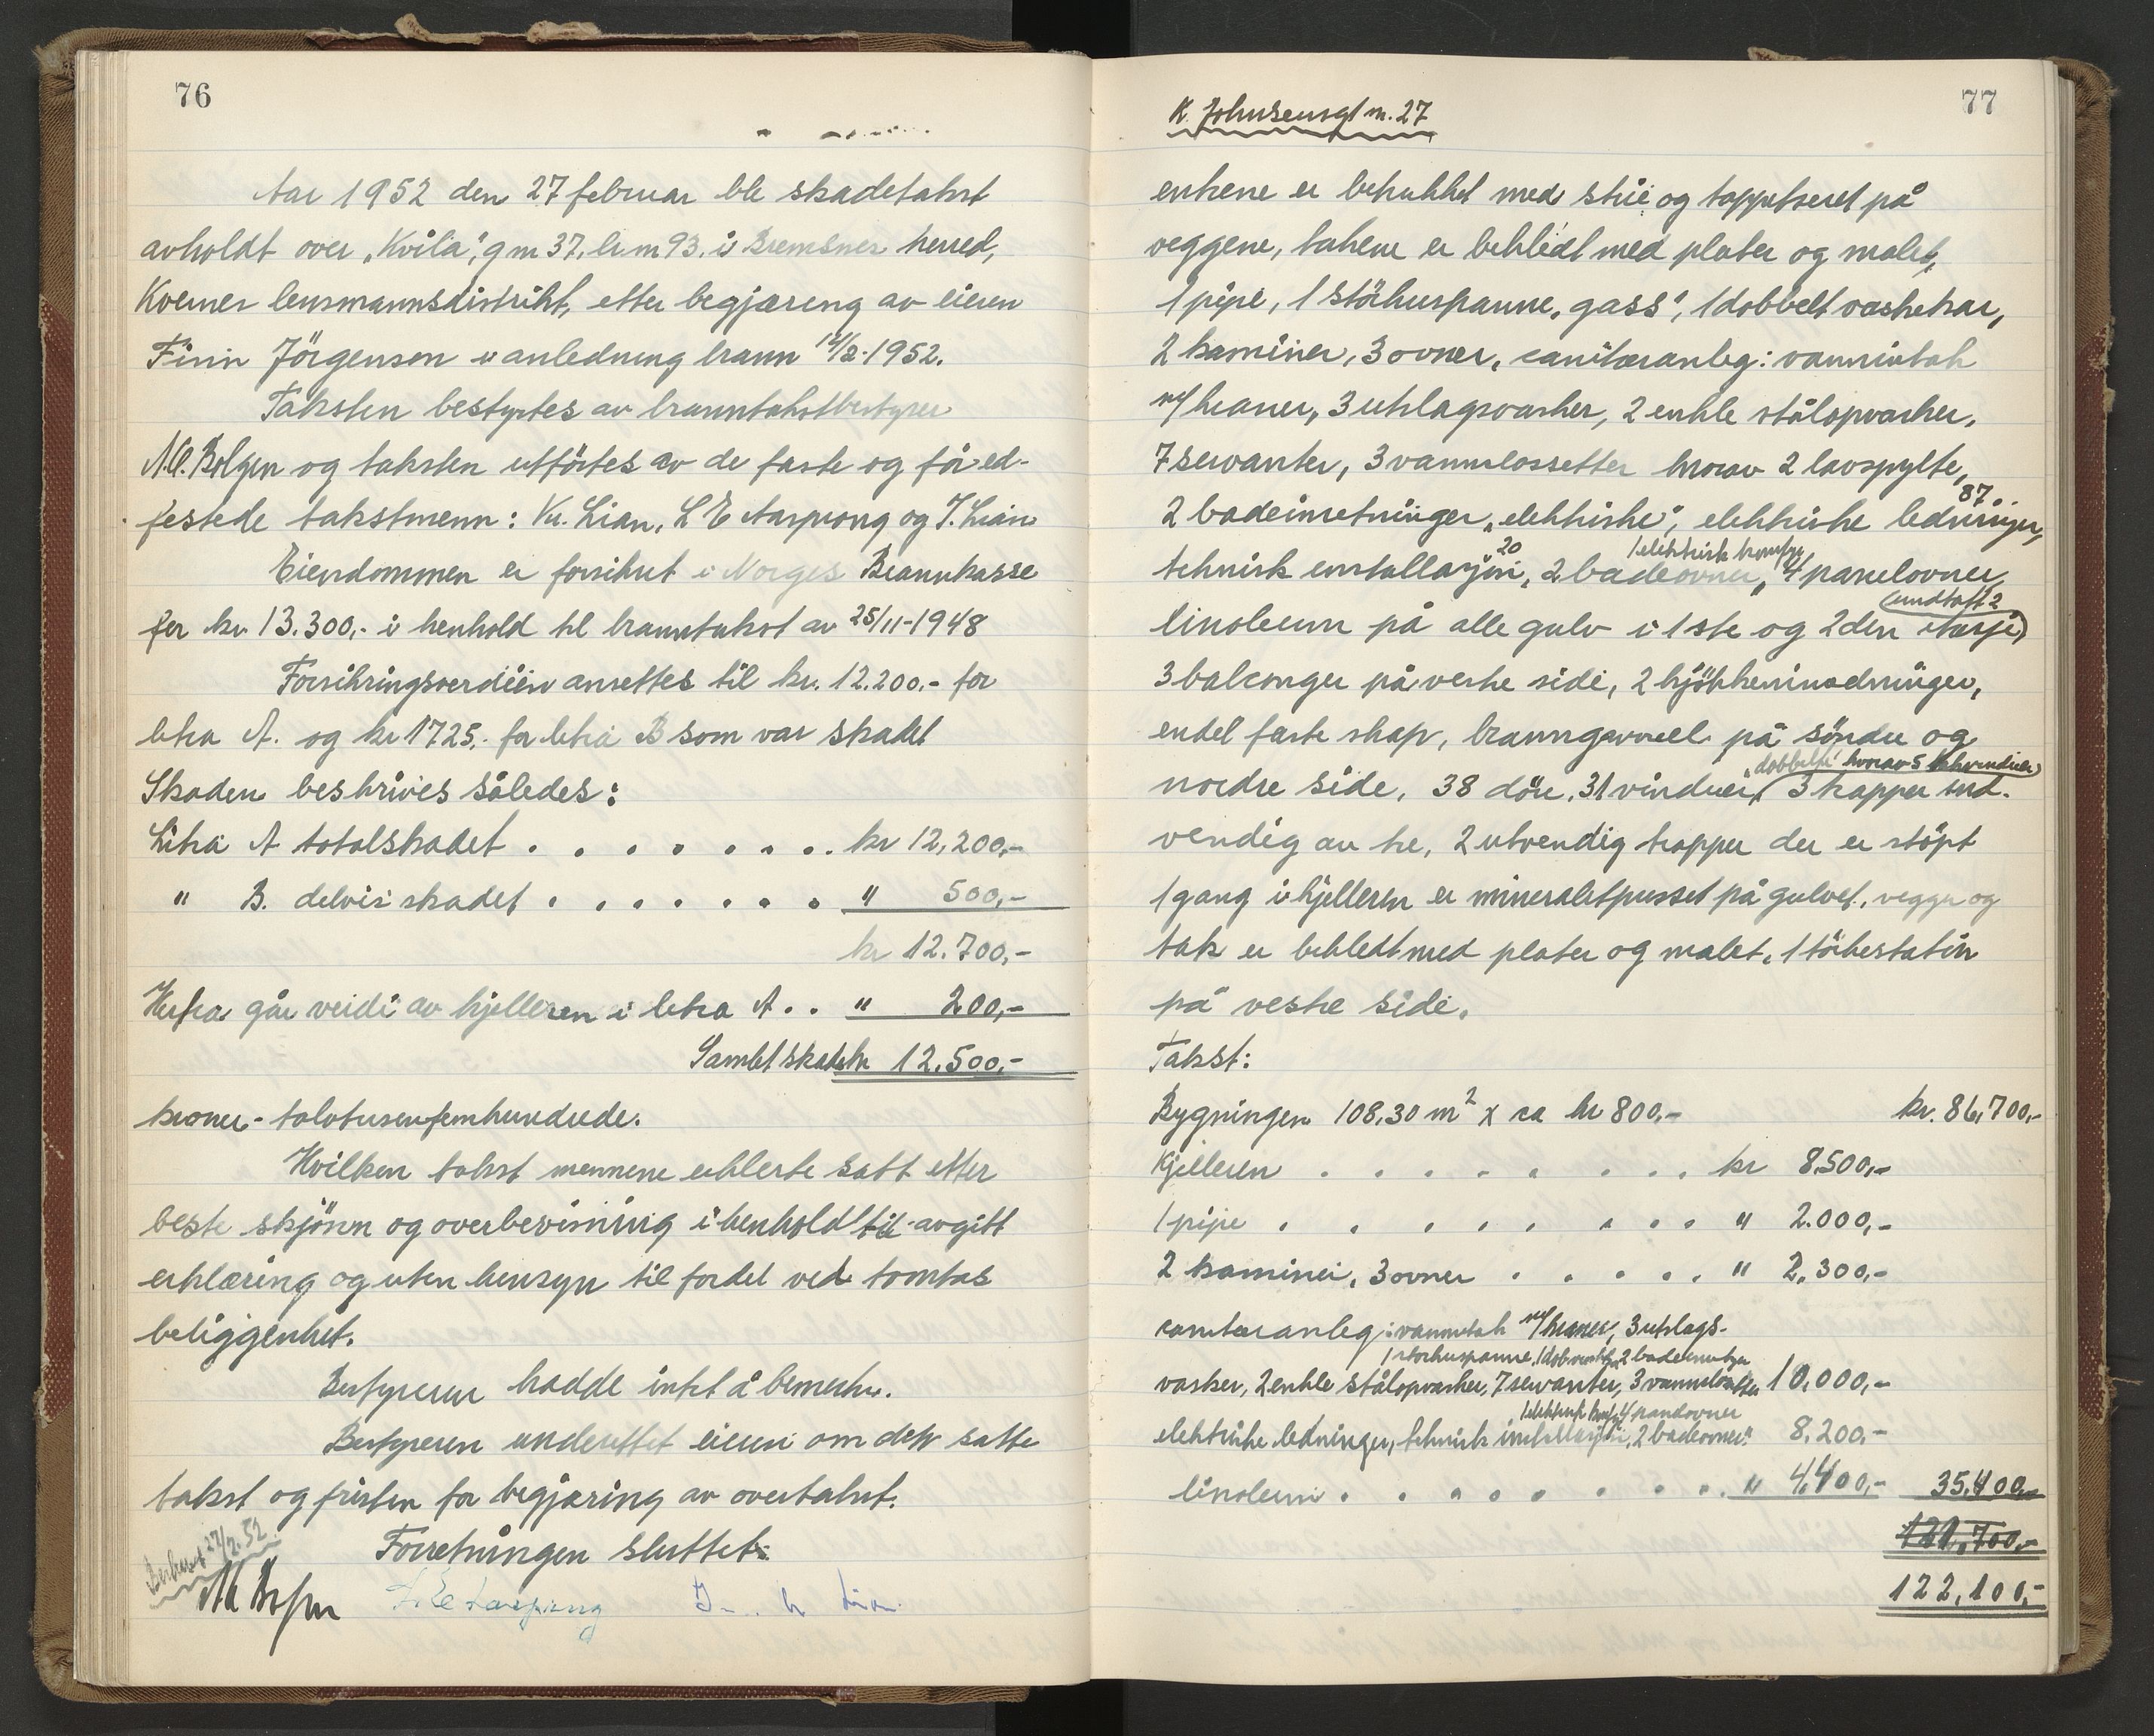 76
Aar 1952 den 27 februar ble skadetakst
avholdt over „Kvila”, g nr 37, br nr 93. i Bremsnes herred,
Kverner lensmannsdistrikt, etter begjæreng av eieren
Finn Jörgensen i anledning brann 14/2-1952.
Taksten bestyrtes av branntakstbestyrer
og taksten utförtes av de faste og få ed-
festede takstmenn: Kr. Lian, L E Aasprong og J. Lian
Eiendommen er forsikret i Norges Brannkasse
for kr 13.300,- i henhold til branntakst av 25/11-1948
Forsikringsverdien ansettes til kr. 12.200.- for
litra A. og kr 1725,- for litra B som var skadet
Skaden beskrives således:
Litra A totalskadet . . . . . . . . kr 12,200,-
" B. delvis skadet . . . . . . . " 500,-
kr 12.700,-
Herfra går verdi av kjelleren i litra A . . " 200,-
Samlet skade kr 12.500,-
kroner- tolvtusenfemhundrede.
Hvilken takst mennene erklerte satt etter
beste skjönn og overbevisning i henhold til avgitt
erklæring og uten hensyn til fordel ved tomtas
beliggenhet.
Bestyreren hadde intet å bemerke.
Bestyreren underettet eieren om den satte
takst og fristen for begjæring av overtakst.
Forretningen sluttet.
27/2.52
L E Aasprong
77
K. Johnsensgt nr. 27
enkene er betrukket med strie og tappetseret på
veggene, takene er bekledt med plater og malet,
1 pipe, 1 störhuspanne „gass”, 1 dobbelt vaskekar,
2 kaminer, 3 ovner, sanitæranleg: vanninntak
m/kraner, 3 utslagsvasker, 2 enkle stålopvasker,
7 servanter, 3 vannklossetter hvorav 2 lavspylte,
87..
2 badeinretninger „elektriske”, elektriske ledninger,
20 1 elektrisk komfyr,
teknisk enstallasjon, 2 badeovner, 4 panelovner,
(undtatt 2
linoleum på alle gulv i 1ste og 2den etasje)
3 balconger på vestre side, 2 kjökkeninredninger,
endel faste skap, branngavel på söndre og
dobbelte hvorav 5 takvinduer
nordre side, 38 döre, 31 vinduer, 3 trapper ind-
vendig av tre, 2 utvendig trapper der er stöpt
1 gang i kjelleren er mineralitpusset på gulvet, vegger og
tak er bekledt med plater og malet, 1 törkestativ
på vestre side.
Takst:
Bygningen 108,30 m² x ca kr 800,- kr. 86,700,-
Kjelleren . . . . . . . . . kr 8,500,-
1 pipe . . . . . . . . " 2.000,-
2 kaminer, 3 ovner . . . . . " 2,300,-
sanitæranleg: vanninntak m/kraner, 3 utslags-
1 störhuspanne, 2 badeinretninger
vasker, 2 enkle stålopvasker, 7 servanter, 3 vannklossetter 10,000,-
1 elektrisk komfyr, 4 panelovner
elektriske ledninger, teknisk installasjon, 2 badeovner " 8,200,-
linoleum . . . . . . . . . " 4,400,- 35,400,-
121,700,-
122,100,-